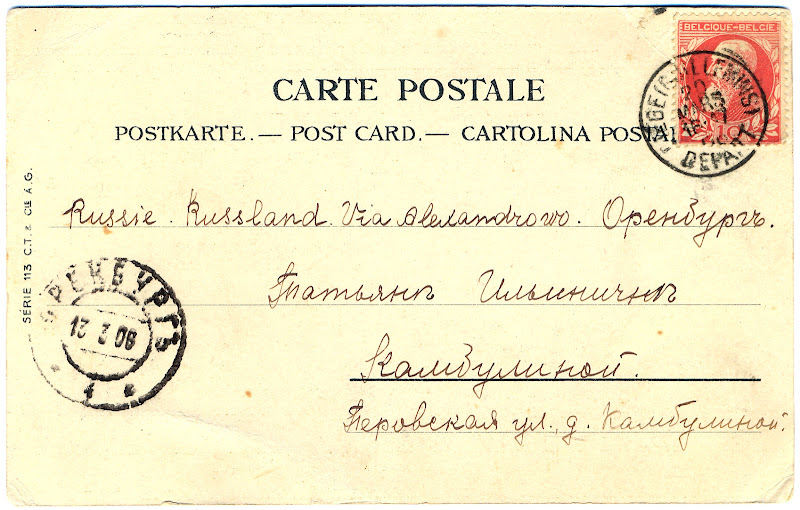 BELGIQUE-BELGIË
CARTE POSTALE
POSTKARTE. — POST CARD. — CARTOLINA POSTAL
DEPART
SERIE 113 C.T. & Cie A.G.
Russie. Russland. Via Alexandrowo. Оренбургъ.
Татьянѣ Ильиничнѣ
Камбулиной.
Перовская ул., д. Камбулиной.
ОРЕНБУРГЪ
13 3 06
4